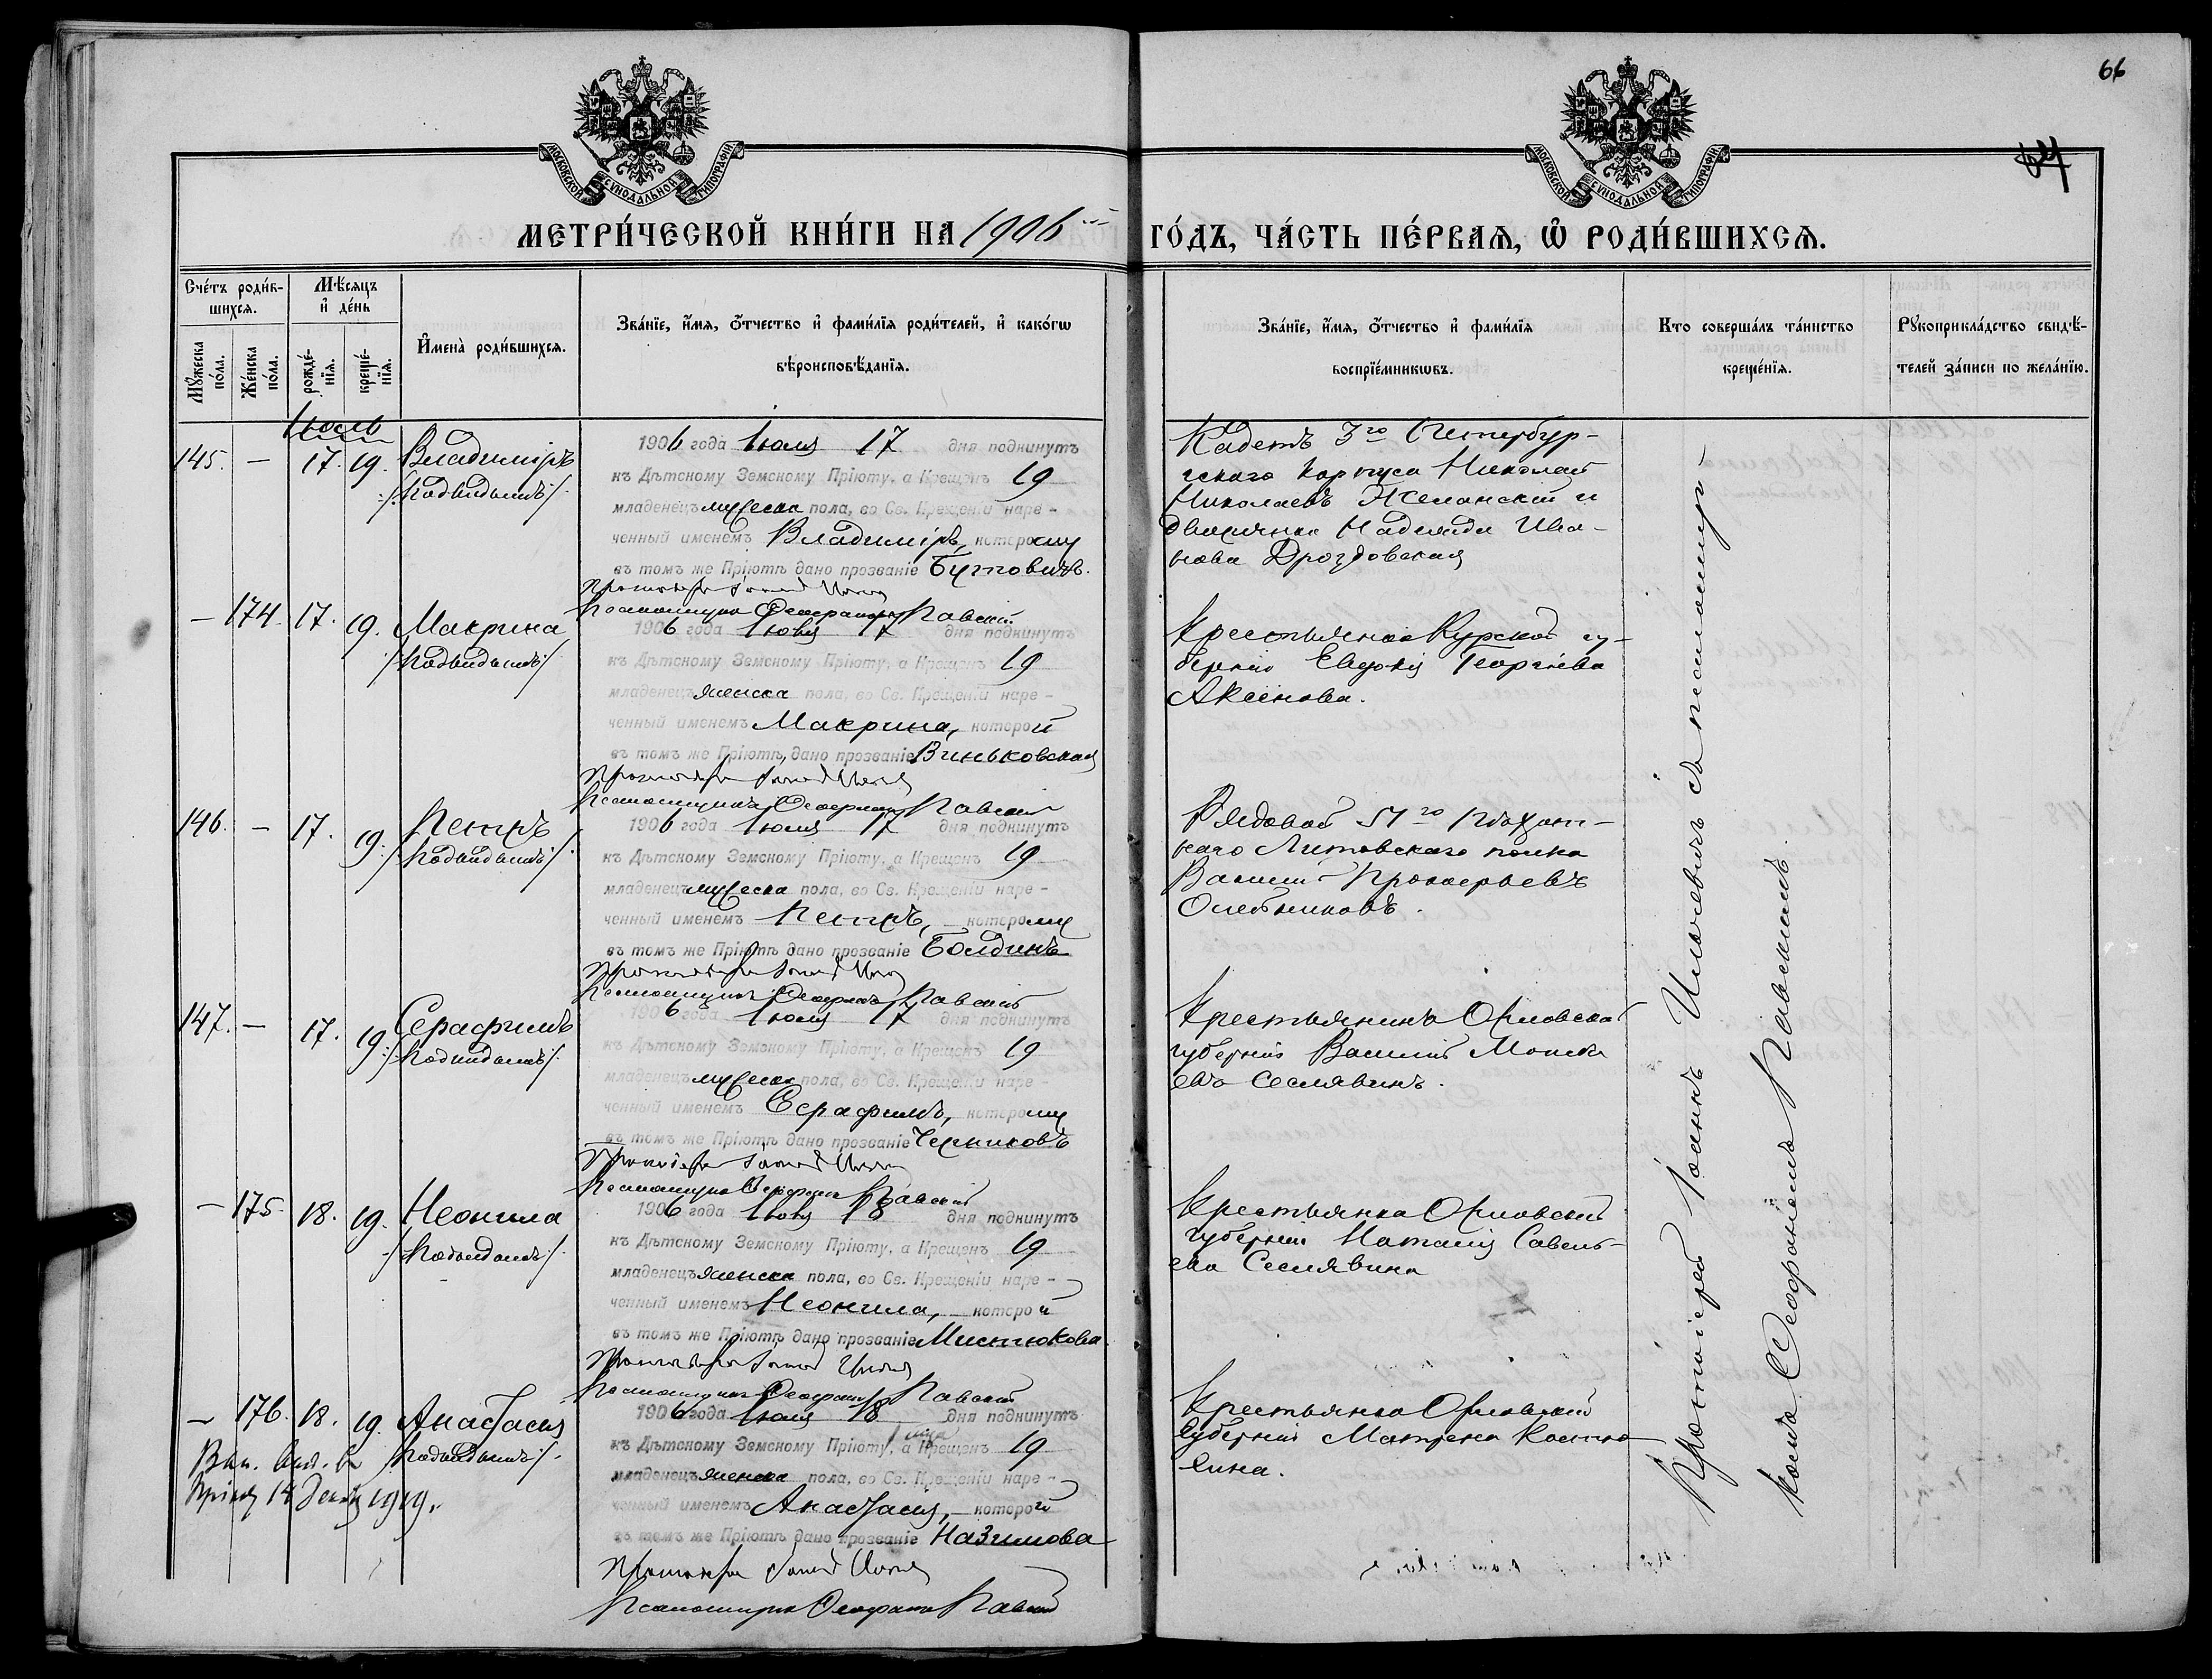 66
МОСКОВСКОЙ СѴНОДАЛЬНОЙ ТИПОГРАФІИ
МОСКОВСКОЙ СѴНОДАЛЬНОЙ ТИПОГРАФІИ
МЕТРИ́ЧЕСКОЙ КНИ́ГИ НА 1906 ГО́ДЪ, ЧА́СТЬ ПЕ́РВАѦ, Ѡ҆ РОДИ́ВШИХСѦ.
Сче́тъ роди́в-
шихсѧ.
Мꙋ́жеска
по́ла.
Же́нска
по́ла.
Мѣ́сѧцъ
и҆ де́нь
рожде́-
нїѧ.
креще́-
нїѧ.
И҆мена̀ роди́вшихсѧ.
Зва́нїе, и҆́мѧ, ѻ҆́тчество и҆ фами́лїѧ роди́телей, и҆ како́гѡ
вѣроисповѣ́данїѧ.
Зва́нїе, и҆́мѧ, ѻ҆́тчество и҆ фами́лїѧ
воспрїе́мникѡвъ.
Кто соверша́лъ та́инство
креще́нїѧ.
Рꙋкоприкла́дство свидѣ́-
телей за́писи по жела́нїю.
Іюль
145. — 17. 19. Владиміръ
/Подкидышъ/.
1906 года Іюля 17 дня подкинутъ
къ Дѣтскому Земскому Пріюту, а Крещенъ 19
младенецъ мужеска пола, во Св. Крещеніи наре-
ченный именемъ Владиміръ, которому
въ томъ же Пріютѣ дано прозваніе Бутовичъ.
Псаломщикъ Ѳеофанъ Павскій
Кадетъ 3го Петербур-
гскаго Корпуса Николай
Николаевъ Желанскій и
дворянка Надежда Ива-
нова Дроздовская
— 174. 17. 19. Макрина
/Подкидышъ/
1906 года Іюля 17 дня подкинутъ
къ Дѣтскому Земскому Пріюту, а Крещенъ 19
младенецъ женска пола, во Св. Крещеніи наре-
ченный именемъ Макрина, которой
въ томъ же Пріютѣ, дано прозваніе Виньковская
Псаломщикъ Ѳеофанъ Павскій
Крестьянка Курской гу-
берніи Евдокія Георгіева
Аксенова.
146. — 17. 19. Петръ
/Подкидышъ/.
1906 года Іюля 17 дня подкинутъ
къ Дѣтскому Земскому Пріюту, а Крещенъ 19
младенецъ мужеска пола, во Св. Крещеніи наре-
ченный именемъ Петръ, которому
въ томъ же Пріютѣ дано прозваніе Болдинъ
Псаломщикъ Ѳеофанъ Павскій
Рядовой 51го Пѣхот-
наго Литовскаго полка
Василій Прокофьевъ
147. — 17. 19. Серафимъ
/Подкидышъ/.
1906 года Іюля 17 дня подкинутъ
къ Дѣтскому Земскому Пріюту, а Крещенъ 19
младенецъ мужеска пола, во Св. Крещеніи наре-
ченный именемъ Серафимъ, которому
въ томъ же Пріютѣ дано прозваніе
Псаломщикъ Ѳеофанъ Павскій
Крестьянинъ Орловской
губерніи Василій Моисе
евъ Сеслявинъ.
— 175 18. 19. Неонила
/Подкидышъ/.
1906 года Іюля 18 дня подкинутъ
къ Дѣтскому Земскому Пріюту, а Крещенъ 19
младенецъ женска пола, во Св. Крещеніи наре-
ченный именемъ Неонила, которой
въ томъ же Пріютѣ дано прозваніе Мистюкова.
Псаломщикъ Ѳеофанъ Павскій
Крестьянка Орловской
губерніи Наталія Савель-
ева Сеслявина
— 176. 18. 19. Анастасія
/Подкидышъ/.
1919.
1906 года Іюля 18 дня подкинутъ
къ Дѣтскому Земскому Пріюту, а Крещенъ 19
младенецъ женска пола, во Св. Крещеніи наре-
ченный именемъ Анастасія, которой
въ томъ же Пріютѣ дано прозваніе Назимова
Псаломщикъ Ѳеофанъ Павскій
Крестьянка Орловской
губерніи Матрена
Протоіерей Іоаннъ съ псаломщи-
комъ Ѳеофаномъ Павскимъ.